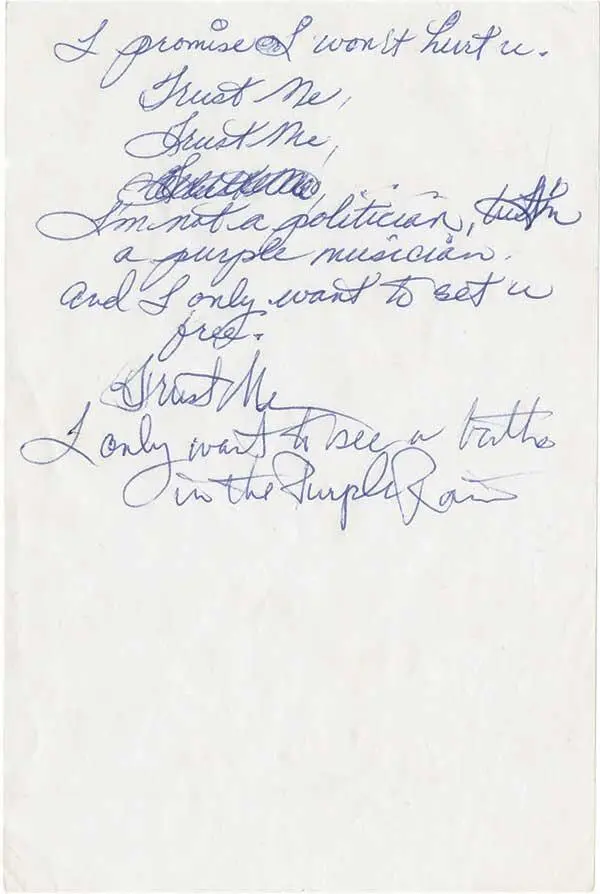 I promise I won't hurt u.
Trust Me,
Trust Me,
I'm not a politician, I'm
a purple musician.
and I only want to set u
free.
Trust Me
I only want to see u bathe
in the Purple Rain